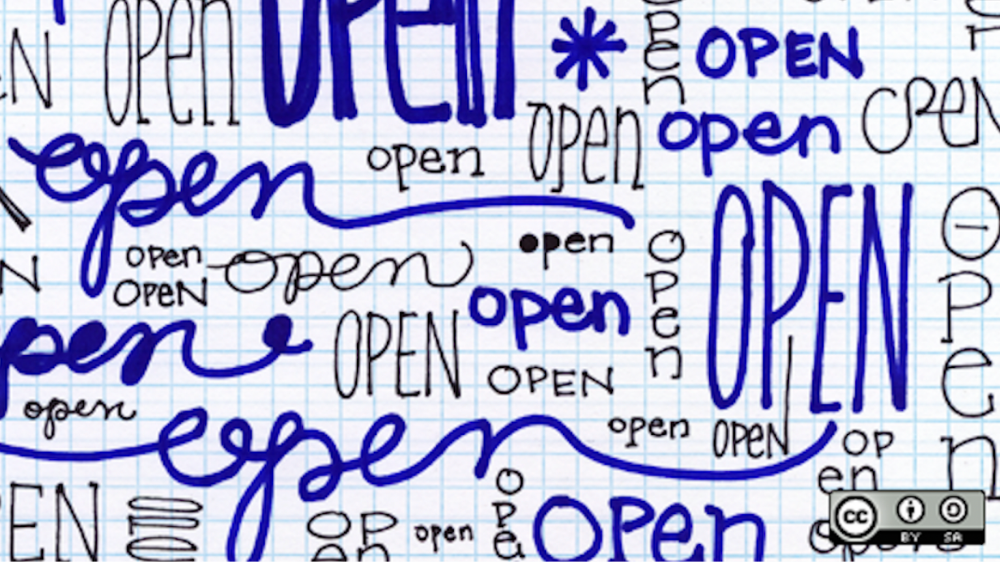 open
OPEN
open
OPEN
open
open
open
open
open
open
open
open
OPEN
open
OPEN
open
OPEN
open
OPEN
OPEN
open
open
open
open
OPEN
op
en
open
open
open
cc
BY SA